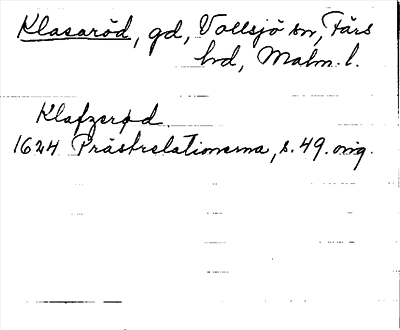 Klasaröd, gd, Vollsjö sn, Färs
hd, Malm. l.
Klafzerød.
1624 Prästrelationerna, s. 49. orig.